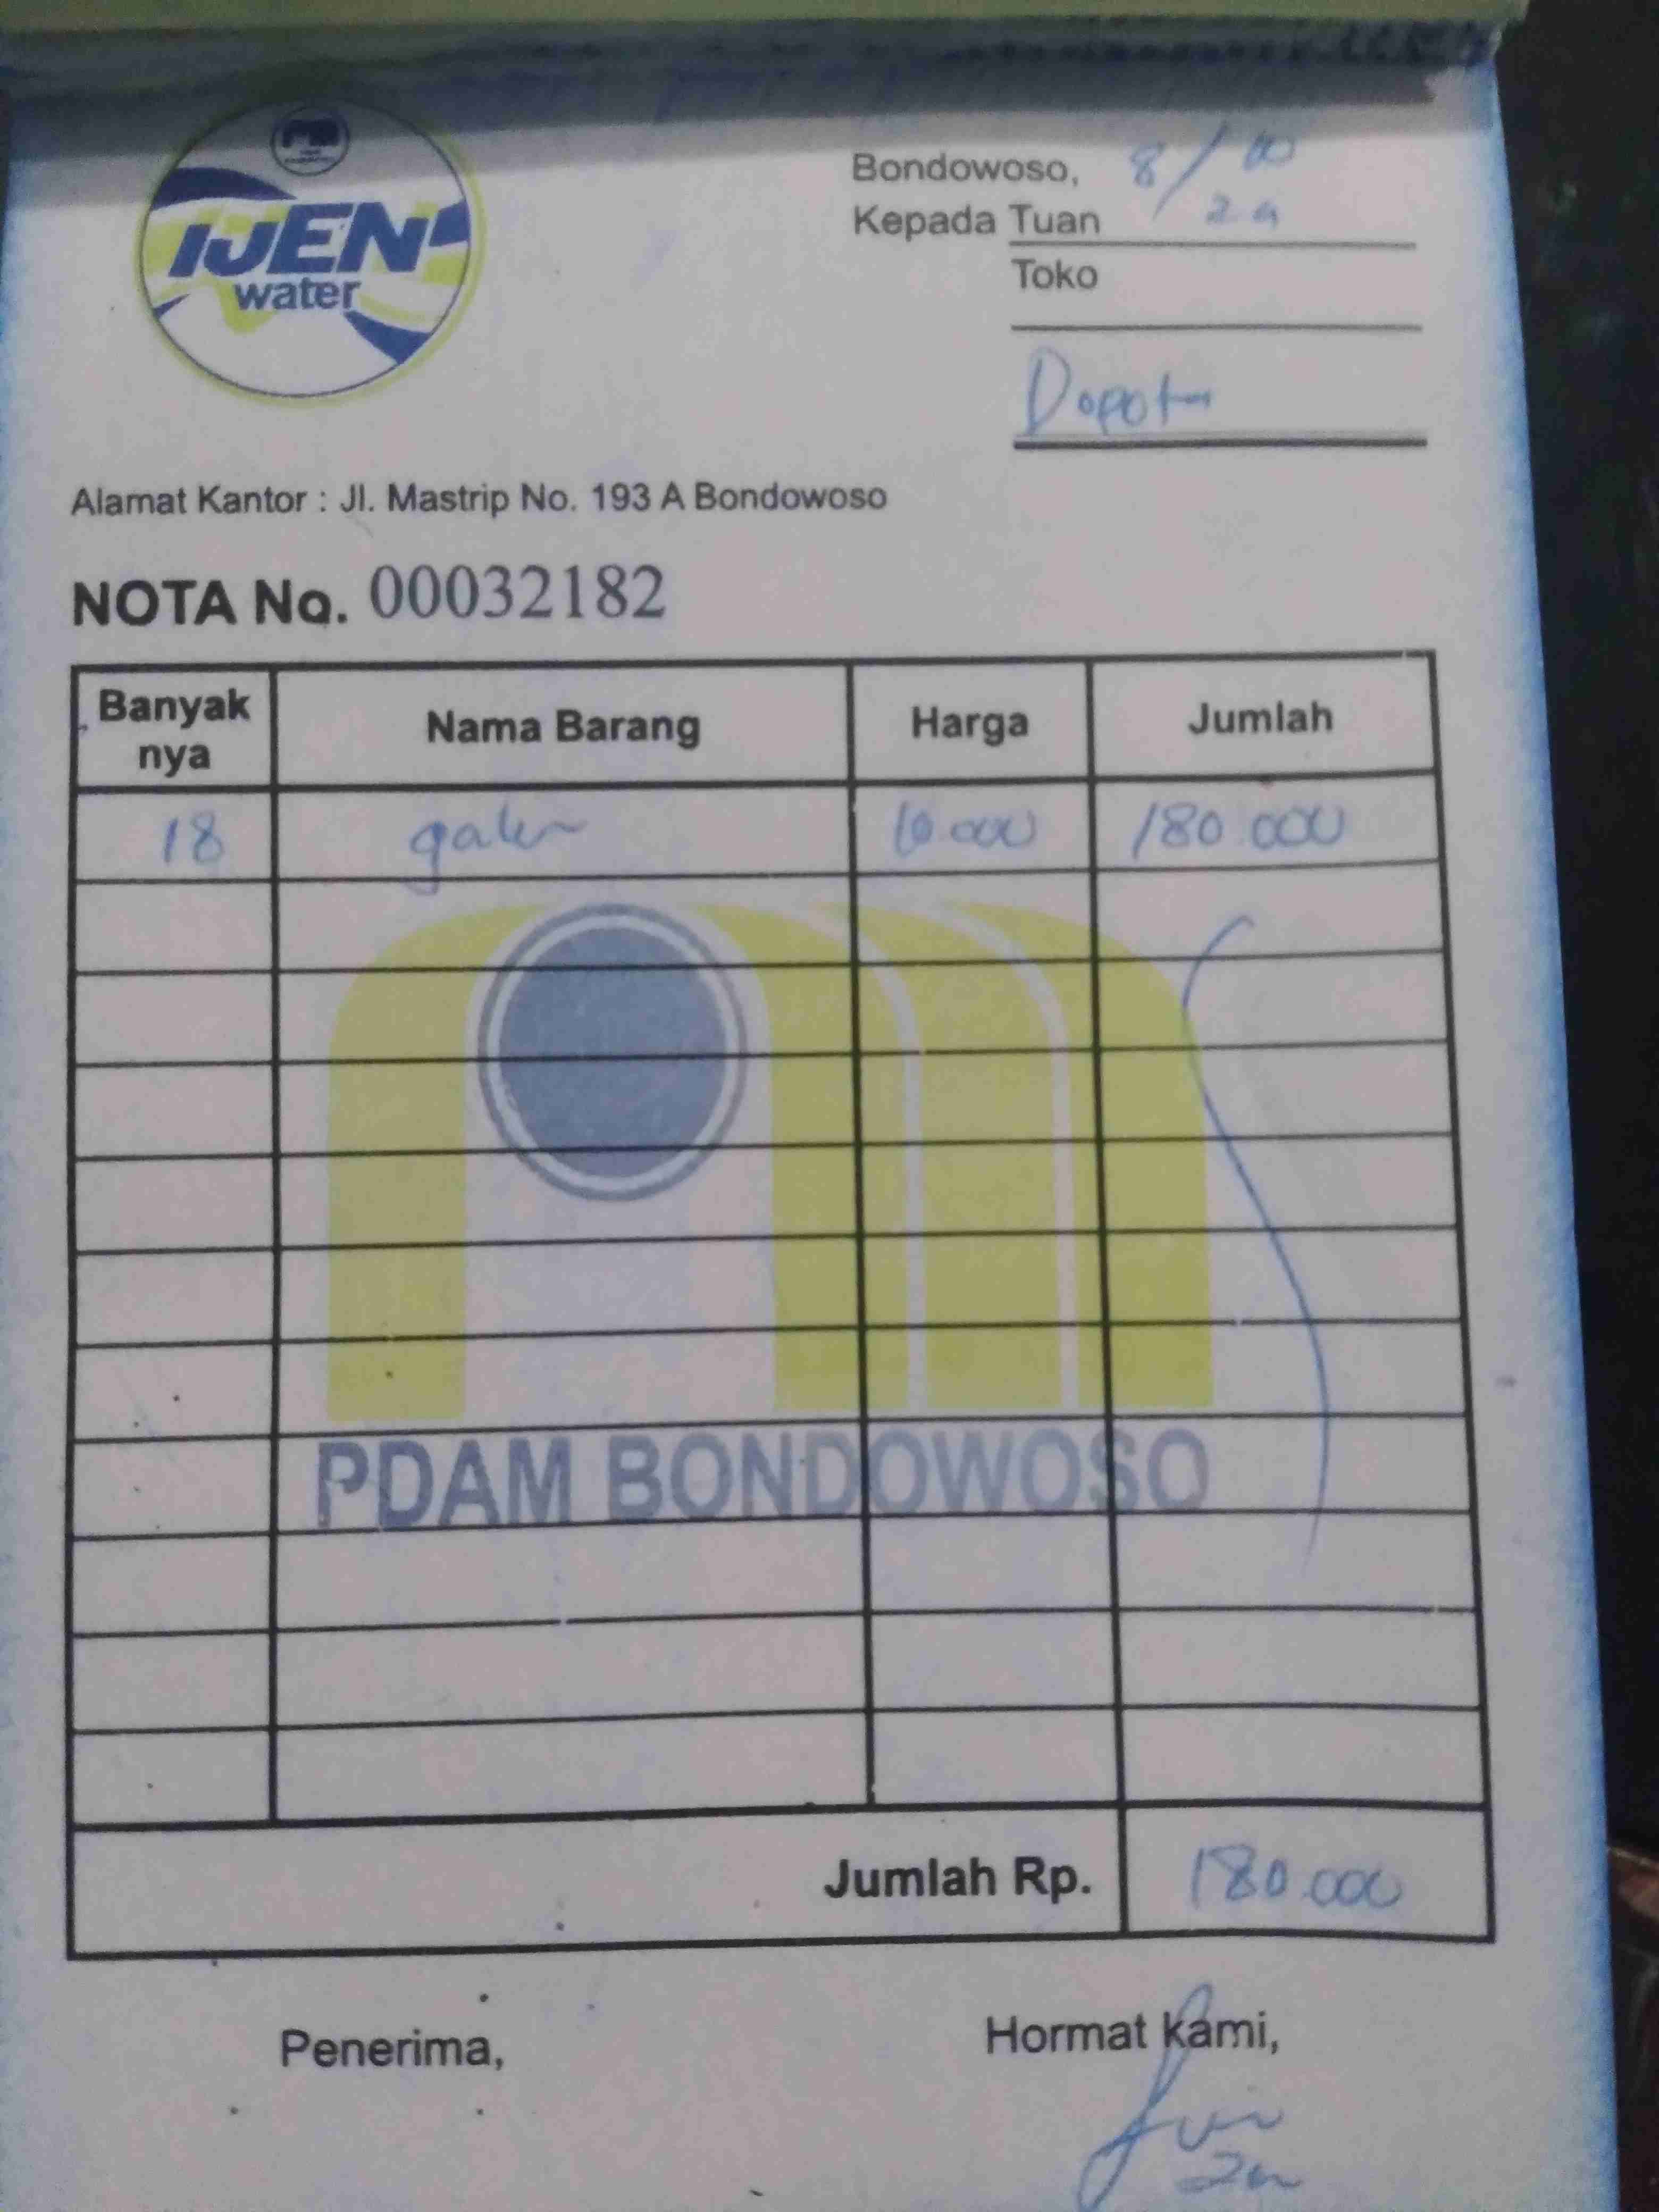 IJEN
water
Bondowoso, 8/10
24
Kepada Tuan
Toko
Depot
Alamat Kantor : Jl. Mastrip No. 193 A Bondowoso
NOTA No. 00032182
Banyak nya Nama Barang Harga Jumlah
18 galon 10.000 180.000
PDAM BONDOWOSO
Jumlah Rp. 180.000
Penerima, Hormat Kami,